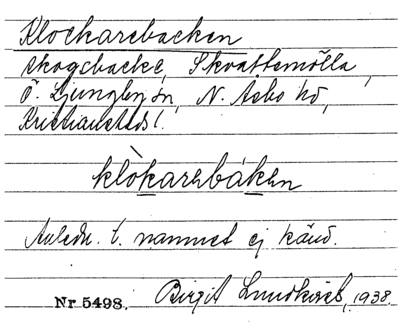 Klockarebacken
skogsbacke, Skvattemölla,
Ö. Ljungby sn, N. Åsbo hd,
Kristianstads l.
klòkarebáken
Anledn. t. namnet ej känd.
Nr 5498. Birgit Lundkvist, 1938.